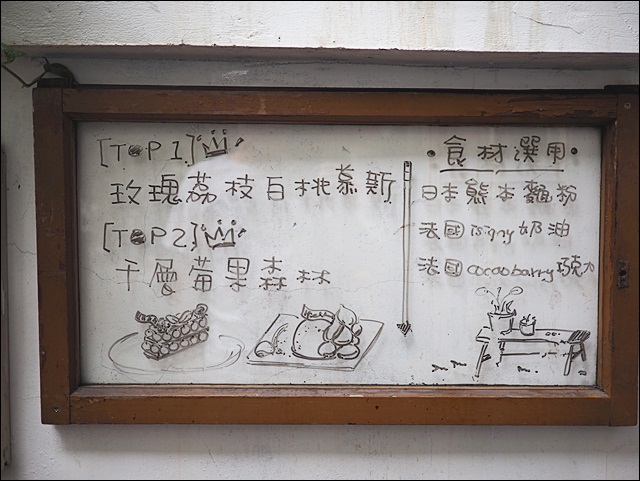 [TOP 1]
玫瑰荔枝白桃慕斯
[TOP 2]
千層莓果森林
·食材選用·
日本熊本麵粉
法國Isigny奶油
法國cocoabarry巧克力